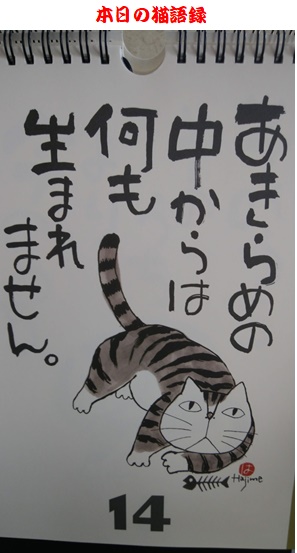 本日の猫語録
あきらめの
中からは
何も
生まれ
ません。
は
Hajime
14